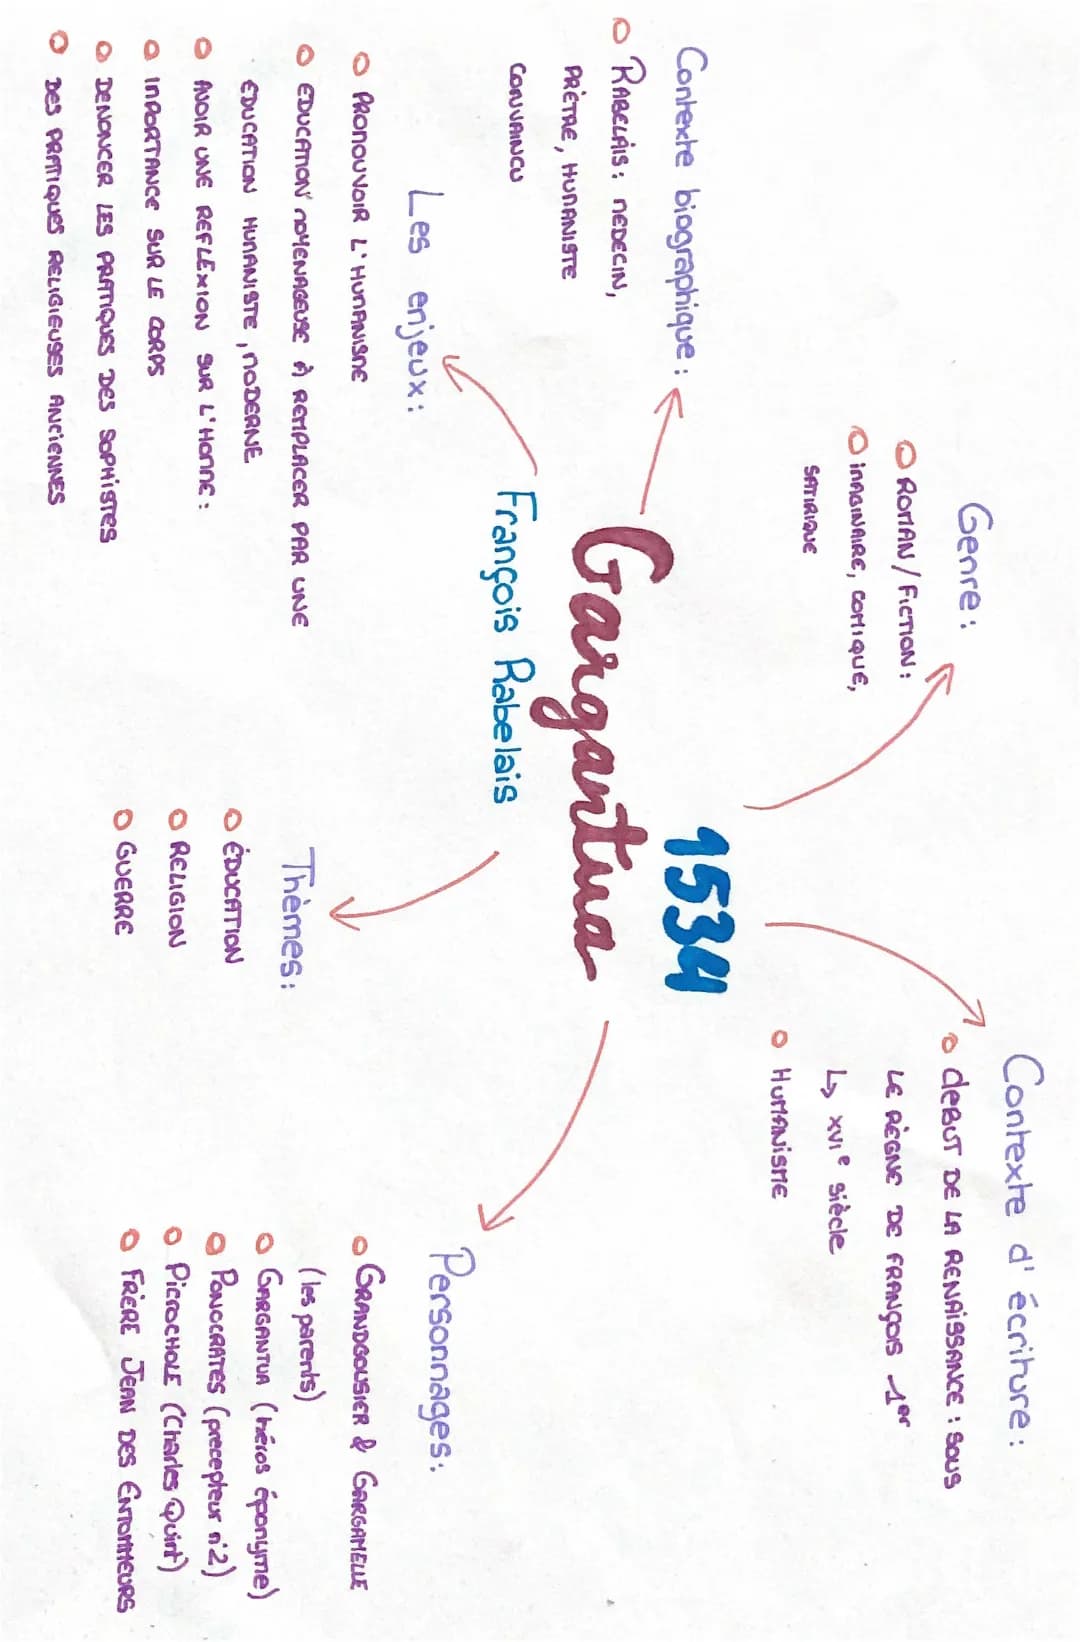 Genre :
ROMAN / FICTION :
IMAGINAIRE, COMIQUE,
SATIRIQUE
Contexte d'écriture :
DEBUT DE LA RENAISSANCE : SOUS
LE RÈGNE DE FRANÇOIS 1er
↳ XVIe siècle
HUMANISME
Contexte biographique :
RABELAIS : MEDECIN,
PRÊTRE, HUMANISTE
CONVAINCU
1534
Gargantua
François Rabelais
Les enjeux :
PRONOUVOIR L'HUMANISME
EDUCATION MOYENAGEUSE À REMPLACER PAR UNE
EDUCATION HUMANISTE, MODERNE
AVOIR UNE REFLEXION SUR L'HOMME :
IMPORTANCE SUR LE CORPS
DENONCER LES PRATIQUES DES SOPHISTES
DES PRATIQUES RELIGIEUSES ANCIENNES
Thèmes :
ÉDUCATION
RELIGION
GUERRE
Personnages :
GRANDGOUSIER & GARGAMELLE
(les parents)
GARGANTUA (héros éponyme)
PONOCRATES (precepteur n°2)
PICROCHOLE (Charles Quint)
FRÈRE JEAN DES ENTOMMEURS